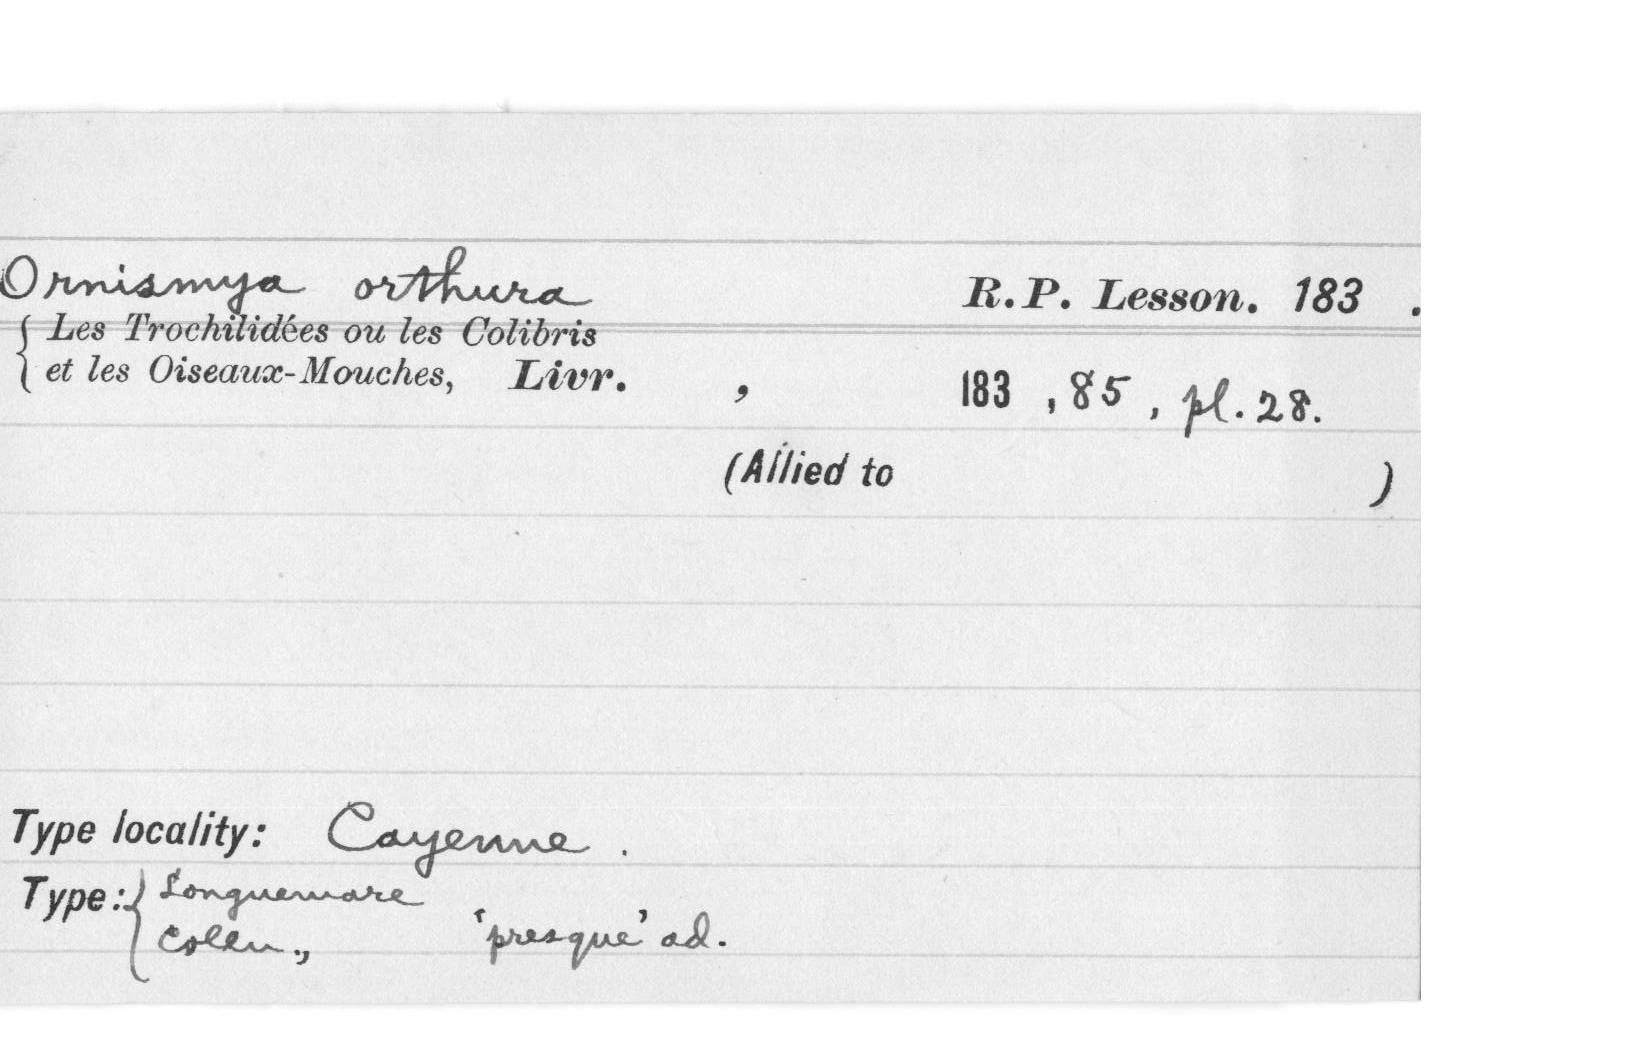 Ornismya orthura R.P. Lesson. 183 .
{ Les Trochilidées ou les Colibris
et les Oiseaux-Mouches, Livr. , 183 , 85 , pl. 28.
(Allied to )
Type locality: Cayenne .
Type: { Longuemare
Colln., 'presque' ad.